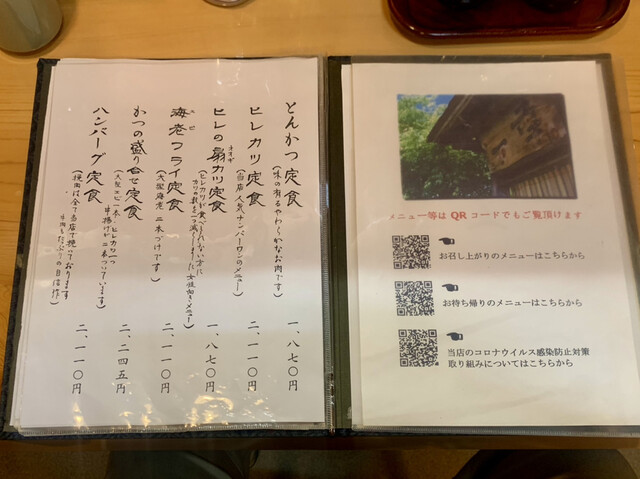 とんかつ定食
(味の有るやわらかなお肉です)
一、八七〇円
ヒレカツ定食
(当店人気ナンバーワンのメニュー)
二、一一〇円
ヒレの扇カツ定食
オオギ
(ヒレカツが食べきれない方に
カツの数を一つ減らしました女性向きメニュー)
一、八七〇円
海老フライ定食
エビ
(大型海老二本づけです)
二、一一〇円
かつの盛り合せ定食
(大型エビ一本、ヒレカツ一つ
串揚げが二本ついています)
二、二四五円
ハンバーグ定食
(挽肉は全て当店で挽いております
牛肉もたっぷりの自信作)
二、一一〇円
メニュー等は QR コードでもご覧頂けます
お召し上がりのメニューはこちらから
お持ち帰りのメニューはこちらから
当店のコロナウイルス感染防止対策
取り組みについてはこちらから